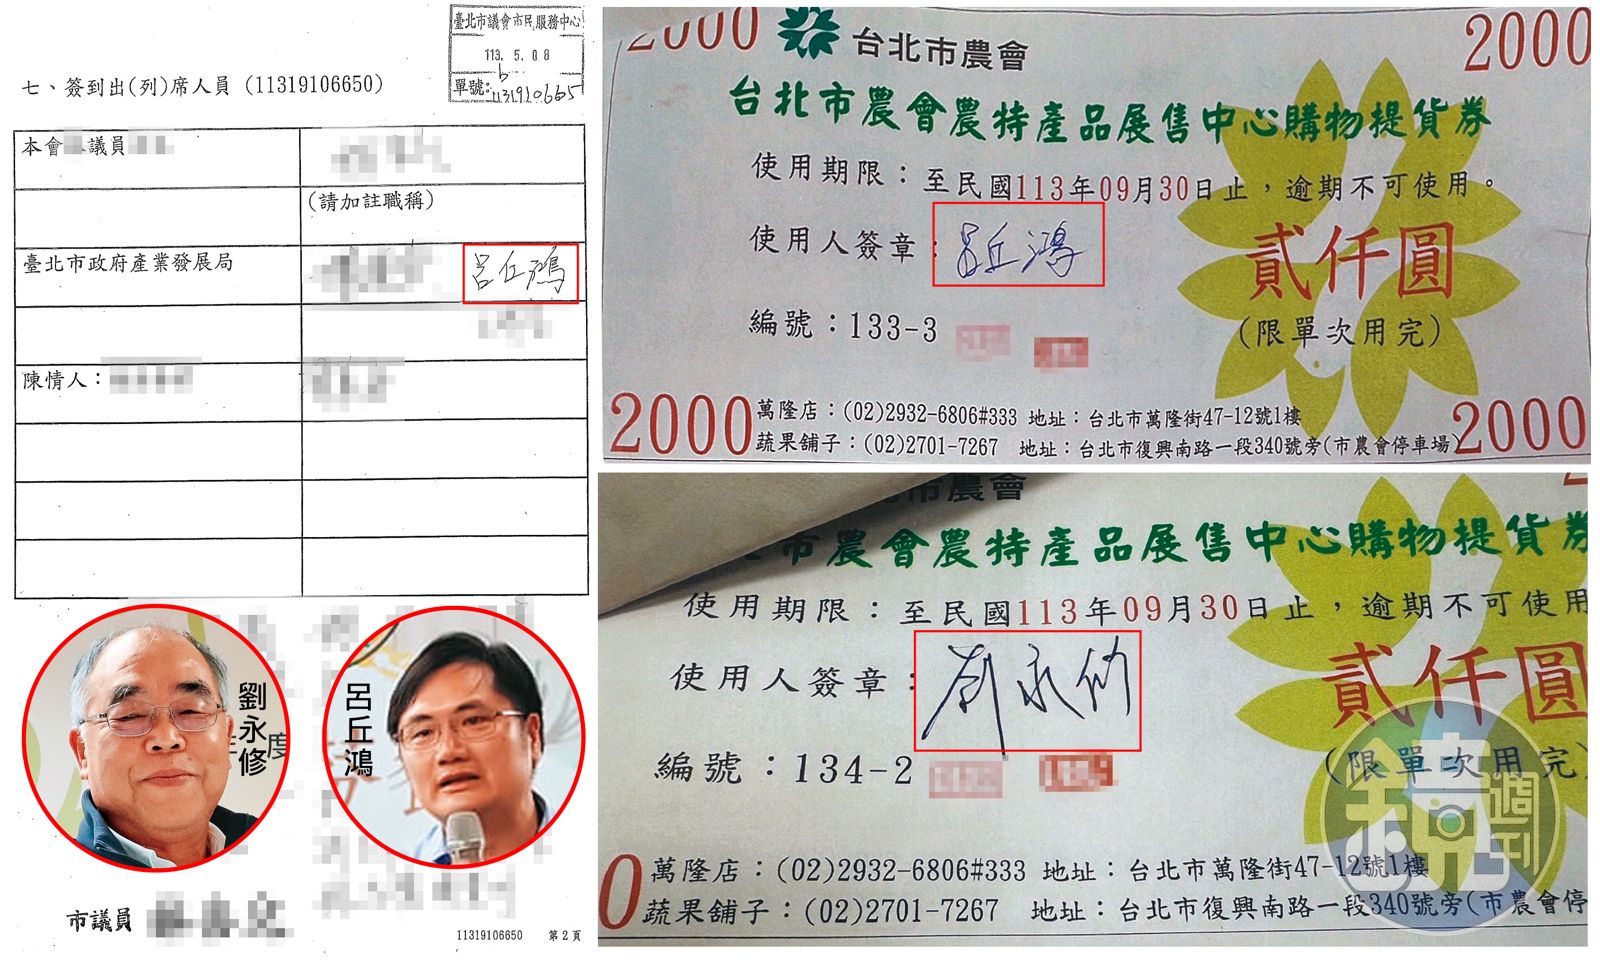 臺北市議會市民服務中心
113. 5. 08
單號:
七、簽到出(列)席人員 (11319106650)
本會
議員
(請加註職稱)
臺北市政府產業發展局
呂丘鴻
陳情人:
劉永修
年度
呂丘鴻
市議員
11319106650 第2頁
2000
台北市農會
2000
台北市農會農特產品展售中心購物提貨券
使用期限：至民國113年09月30日止，逾期不可使用。
使用人簽章：
呂丘鴻
貳仟圓
編號：133-3
(限單次用完)
2000
萬隆店：(02)2932-6806#333 地址：台北市萬隆街47-12號1樓
蔬果舖子：(02)2701-7267 地址：台北市復興南路一段340號旁(市農會停車場)
2000
北市農會
北市農會農特產品展售中心購物提貨券
使用期限：至民國113年09月30日止，逾期不可使用
使用人簽章：
劉永修
貳仟圓
編號：134-2
(限單次用完)
0
萬隆店：(02)2932-6806#333 地址：台北市萬隆街47-12號1樓
蔬果舖子：(02)2701-7267 地址：台北市復興南路一段340號旁(市農會停
鏡週刊